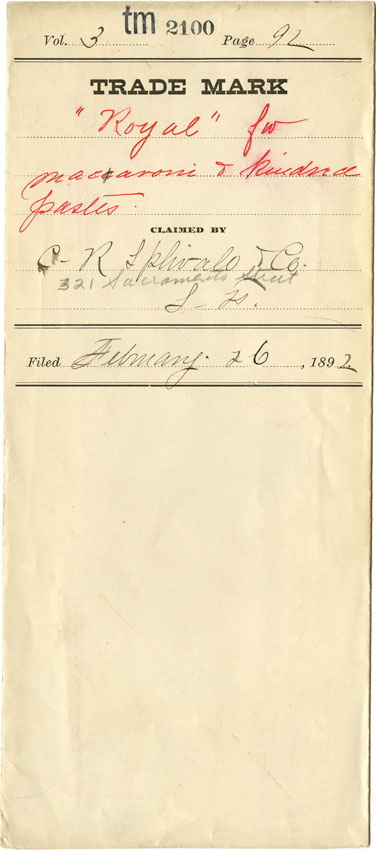 tm 2100
Vol. 3 Page 92
TRADE MARK
"Royal" for
maccaroni & kindred
pastes.
CLAIMED BY
C. R. Splivalo & Co.
321 Sacramento Street
S. F.
Filed February 26, 1892